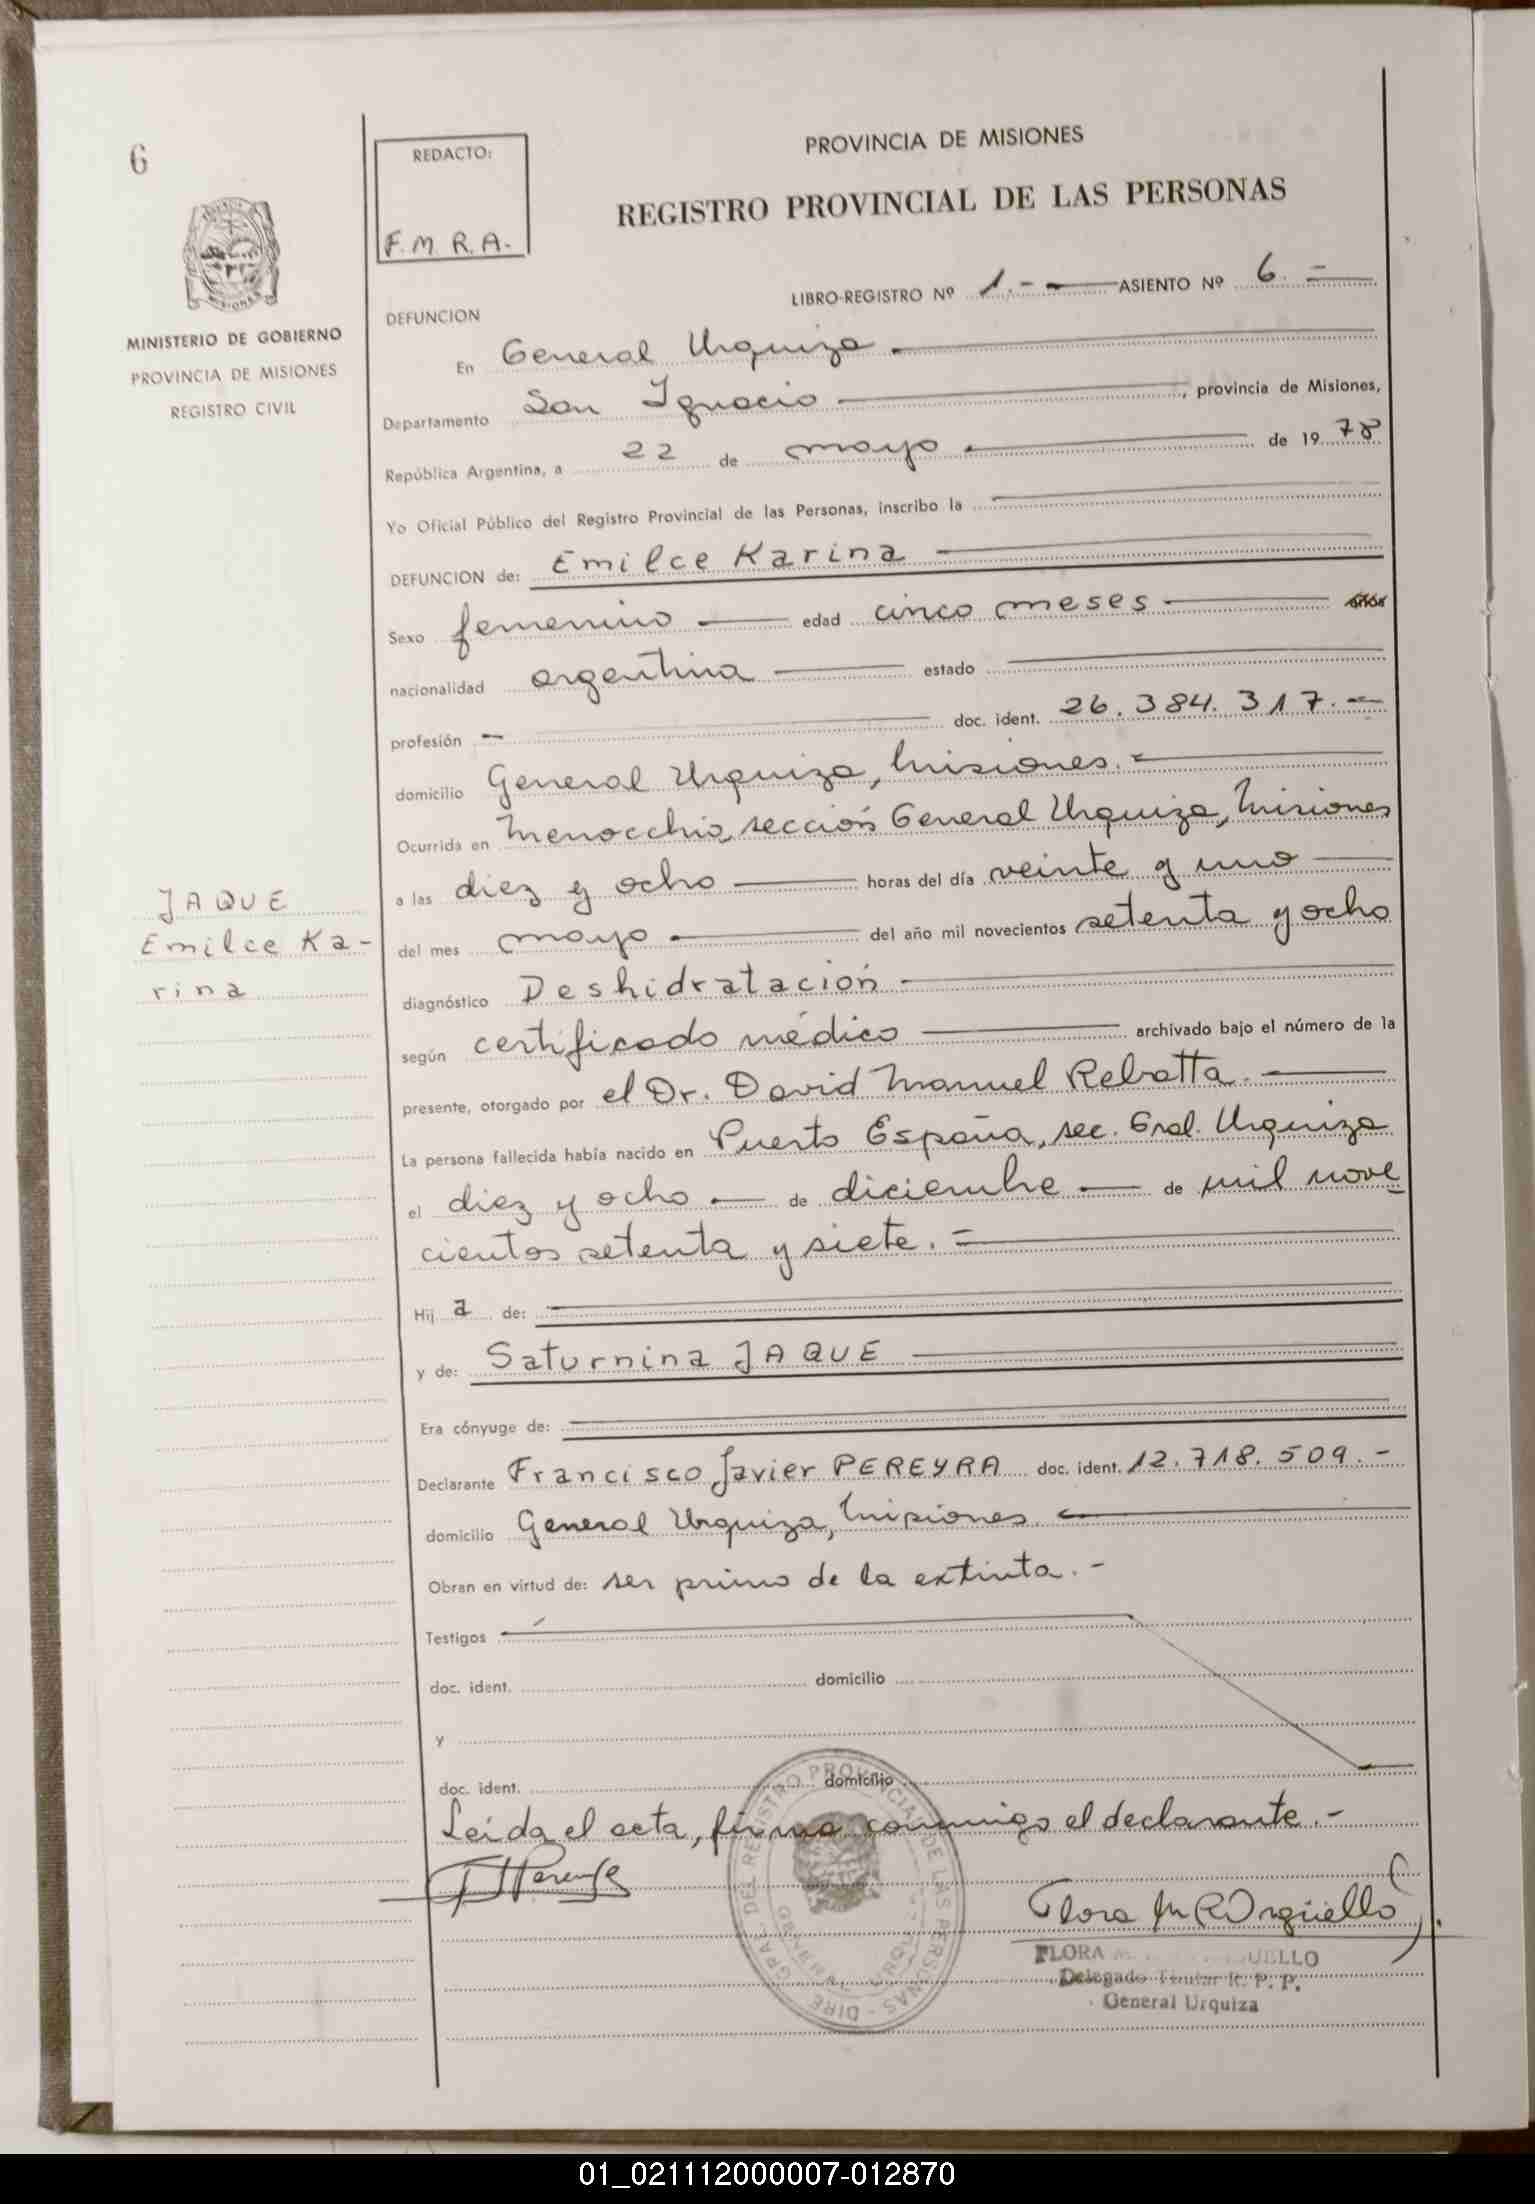 6
REDACTO:
F. M. R. A.
PROVINCIA DE MISIONES
REGISTRO PROVINCIAL DE LAS PERSONAS
MISIONES
MINISTERIO DE GOBIERNO
PROVINCIA DE MISIONES
REGISTRO CIVIL
LIBRO-REGISTRO Nº 1.- ASIENTO Nº 6.-
DEFUNCION
En General Urquiza
Departamento San Ignacio, provincia de Misiones,
República Argentina, a 22 de mayo de 1978
Yo Oficial Público del Registro Provincial de las Personas, inscribo la
DEFUNCION de: Emilce Karina
Sexo femenino edad cinco meses años
nacionalidad argentina estado
profesión - doc. ident. 26.384.317.-
domicilio General Urquiza, Misiones.-
Ocurrida en Menocchio, sección General Urquiza, Misiones
a las diez y ocho horas del día veinte y uno
del mes mayo del año mil novecientos setenta y ocho
JAQUE
Emilce Ka-
rina
diagnóstico Deshidratación
según certificado médico archivado bajo el número de la
presente, otorgado por el Dr. David Manuel Rebatta.
La persona fallecida había nacido en Puerto España, sec. Gral. Urquiza
el diez y ocho de diciembre de mil nove
cientos setenta y siete.=
Hija de:
y de: Saturnina JAQUE
Era cónyuge de:
Declarante Francisco Javier PEREYRA doc. ident. 12.718.509.-
domicilio General Urquiza, Misiones.
Obran en virtud de: ser primo de la extinta.-
Testigos
doc. ident. domicilio
y
doc. ident. domicilio
Leída el acta, firma conmigo el declarante.-
DIRE. GRAL. DEL REGISTRO PROVINCIAL DE LAS PERSONAS
GENERAL URQUIZA
Flora M R Argüello
FLORA M. UELLO
Delegado Titular R. P. P.
General Urquiza
01_021112000007-012870